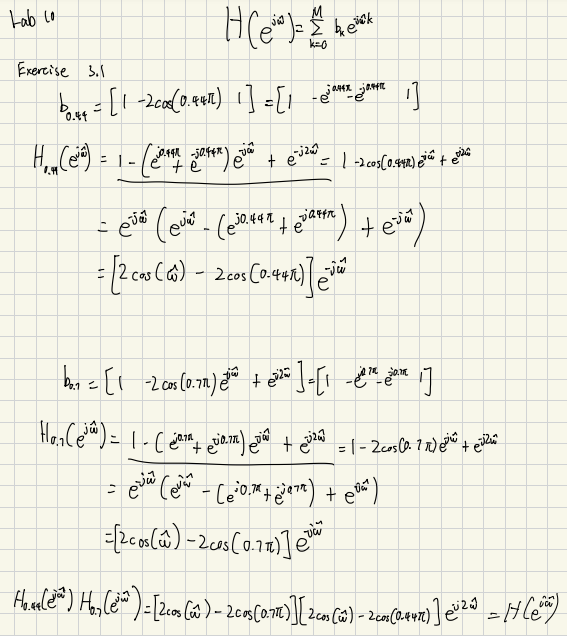 Lab 10
H(e^{jω̂}) = Σ_{k=0}^{M} b_k e^{-jω̂k}
Exercise 3.1
b_{0.44} = [1 -2cos(0.44π) 1] = [1 -e^{j0.44π} -e^{-j0.44π} 1]
H_{0.44}(e^{jω̂}) = 1 - (e^{j0.44π} + e^{-j0.44π}) e^{-jω̂} + e^{-j2ω̂} = 1 - 2cos(0.44π) e^{-jω̂} + e^{-j2ω̂}
= e^{-jω̂} (e^{jω̂} - (e^{j0.44π} + e^{-j0.44π}) + e^{-jω̂})
= [2cos(ω̂) - 2cos(0.44π)] e^{-jω̂}
b_{0.7} = [1 -2cos(0.7π) e^{-jω̂} + e^{-j2ω̂}] = [1 -e^{j0.7π} -e^{-j0.7π} 1]
H_{0.7}(e^{jω̂}) = 1 - (e^{j0.7π} + e^{-j0.7π}) e^{-jω̂} + e^{-j2ω̂} = 1 - 2cos(0.7π) e^{-jω̂} + e^{-j2ω̂}
= e^{-jω̂} (e^{jω̂} - (e^{j0.7π} + e^{-j0.7π}) + e^{-jω̂})
= [2cos(ω̂) - 2cos(0.7π)] e^{-jω̂}
H_{0.44}(e^{jω̂}) H_{0.7}(e^{jω̂}) = [2cos(ω̂) - 2cos(0.7π)][2cos(ω̂) - 2cos(0.44π)] e^{-j2ω̂} = H(e^{jω̂})